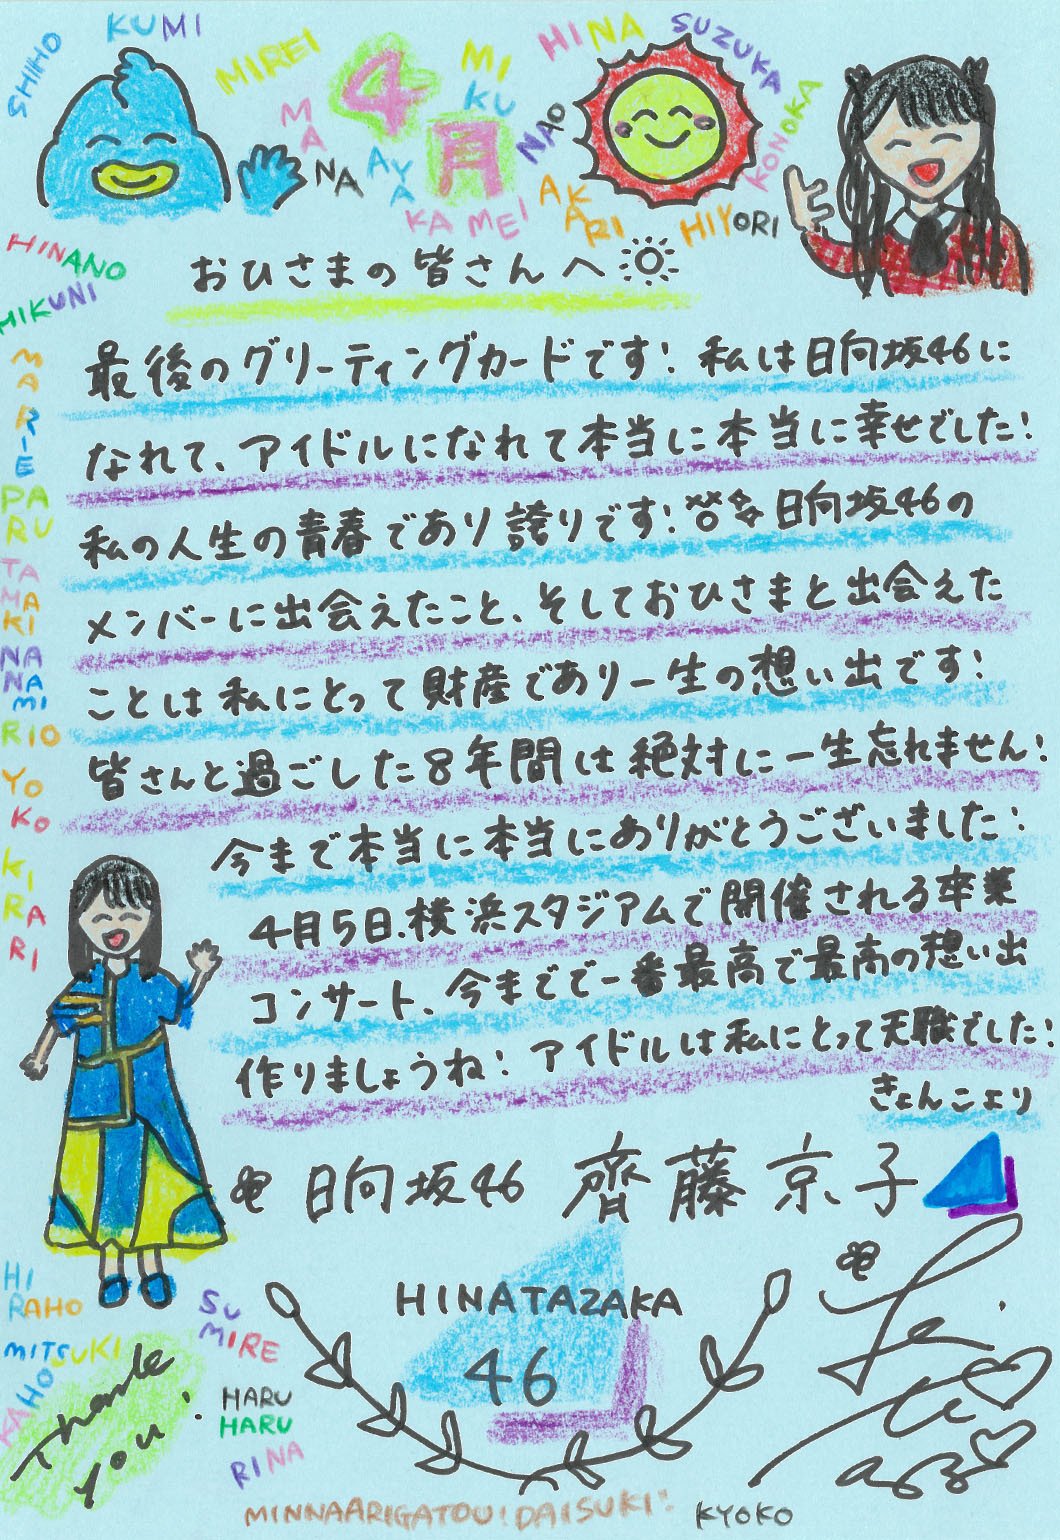 KUMI
SHIHO
MIREI
4月
MIKU
HINA
SUZUKA
MANA
AYA
NAO
KONOKA
KAMEI
AKARI
HIYORI
HINANO
MIKUNI
おひさまの皆さんへ
最後のグリーティングカードです! 私は日向坂46に
なれて、アイドルになれて本当に本当に幸せでした!
私の人生の青春であり誇りです! 日向坂46の
メンバーに出会えたこと、そしておひさまと出会えた
ことは私にとって財産であり一生の想い出です!
皆さんと過ごした8年間は絶対に一生忘れません!
今まで本当に本当にありがとうございました!
4月5日、横浜スタジアムで開催される卒業
コンサート、今までで一番最高で最高の想い出
作りましょうね! アイドルは私にとって天職でした!
きょんこより
日向坂46 齊藤京子
MARIE
PARU
TAMAKI
NANAMI
RIO
YOKO
KIRARI
HIRAHO
MITSUKI
KAHO
SUMIRE
HARUHARU
RINA
Thank
you!
HINATAZAKA
46
MINNAARIGATOU!DAISUKI!
KYOKO